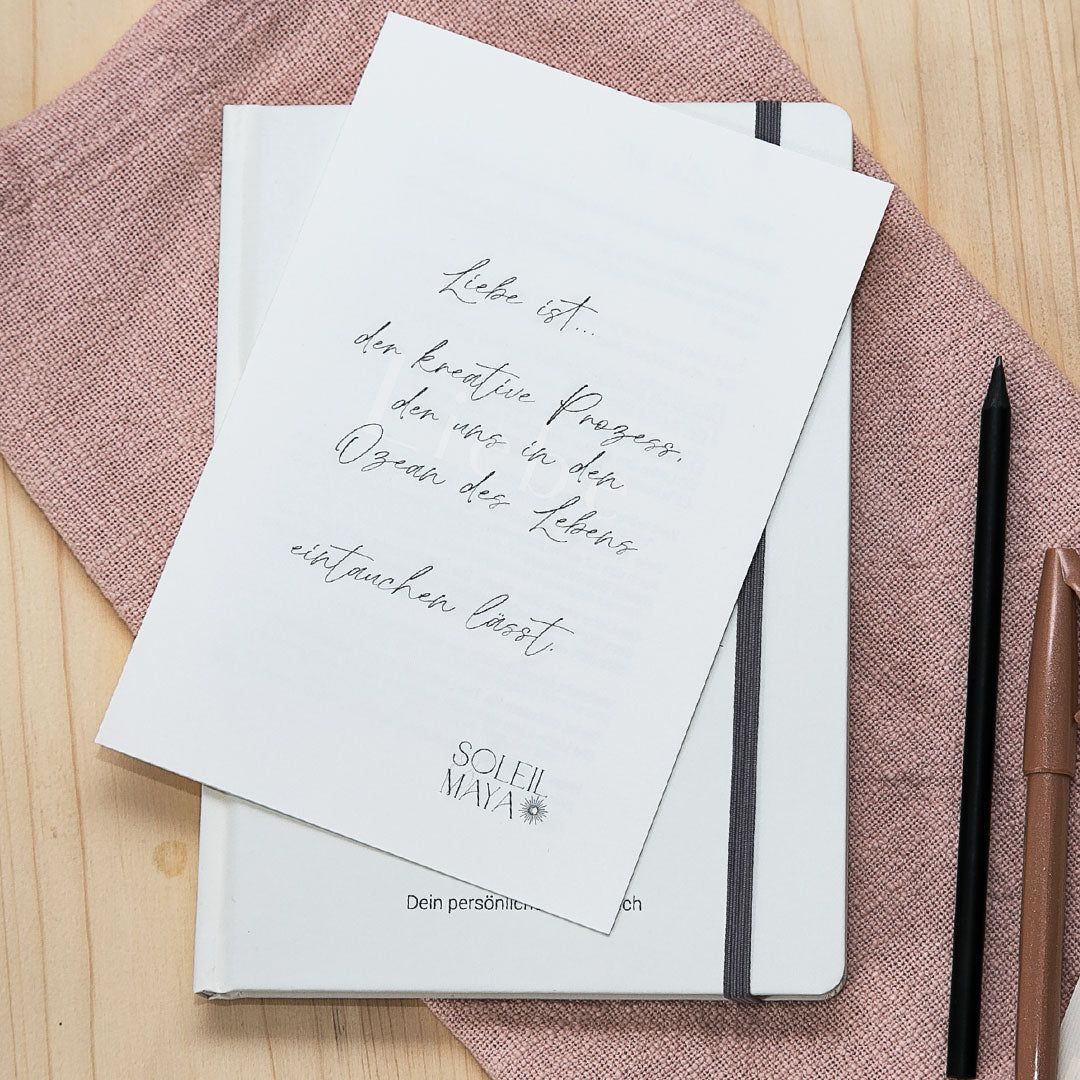 Liebe ist...
der kreative Prozess,
der uns in den
Ozean des Lebens
eintauchen lässt.
SOLEIL
MAYA
Liebe
Dein